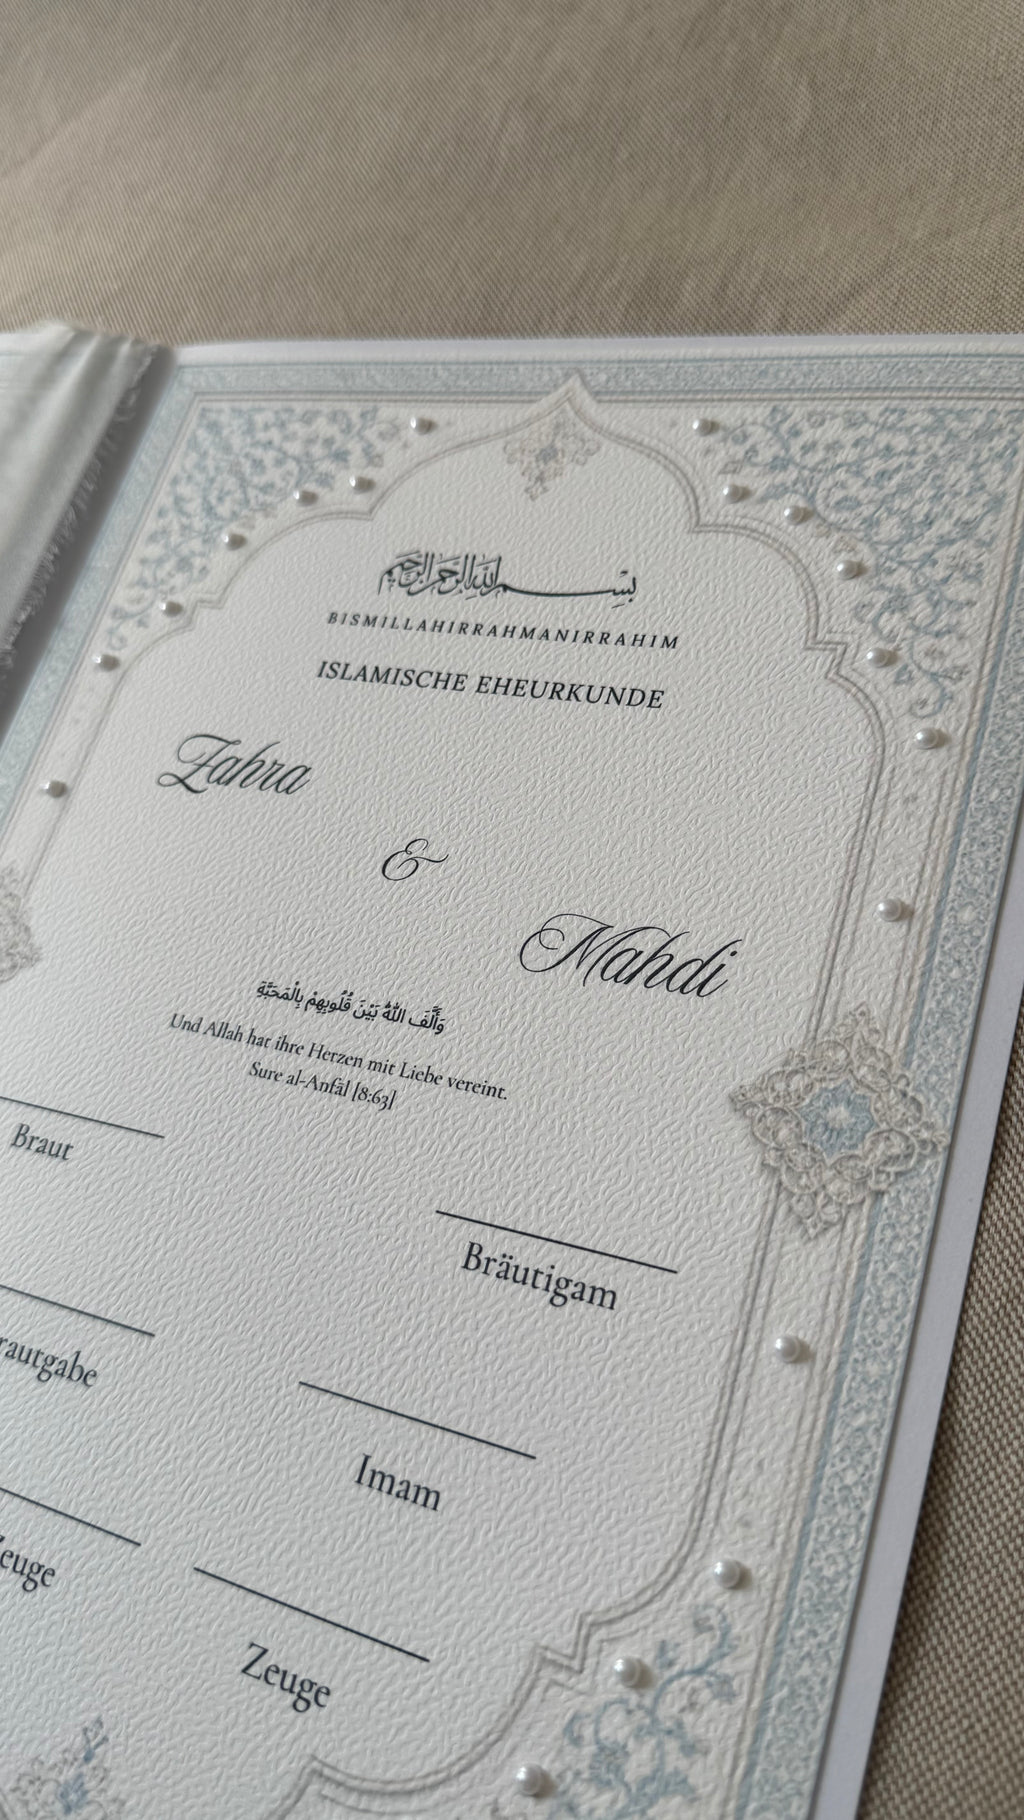 بسم الله الرحمن الرحيم
BISMILLAHIRRAHMANIRRAHIM
ISLAMISCHE EHEURKUNDE
Zahra
&
Mahdi
وَأَلَّفَ اللَّهُ بَيْنَ قُلُوبِهِمْ بِالْمَحَبَّةِ
Und Allah hat ihre Herzen mit Liebe vereint.
Sure al-Anfāl [8:63]
Braut
Bräutigam
rautgabe
Imam
euge
Zeuge